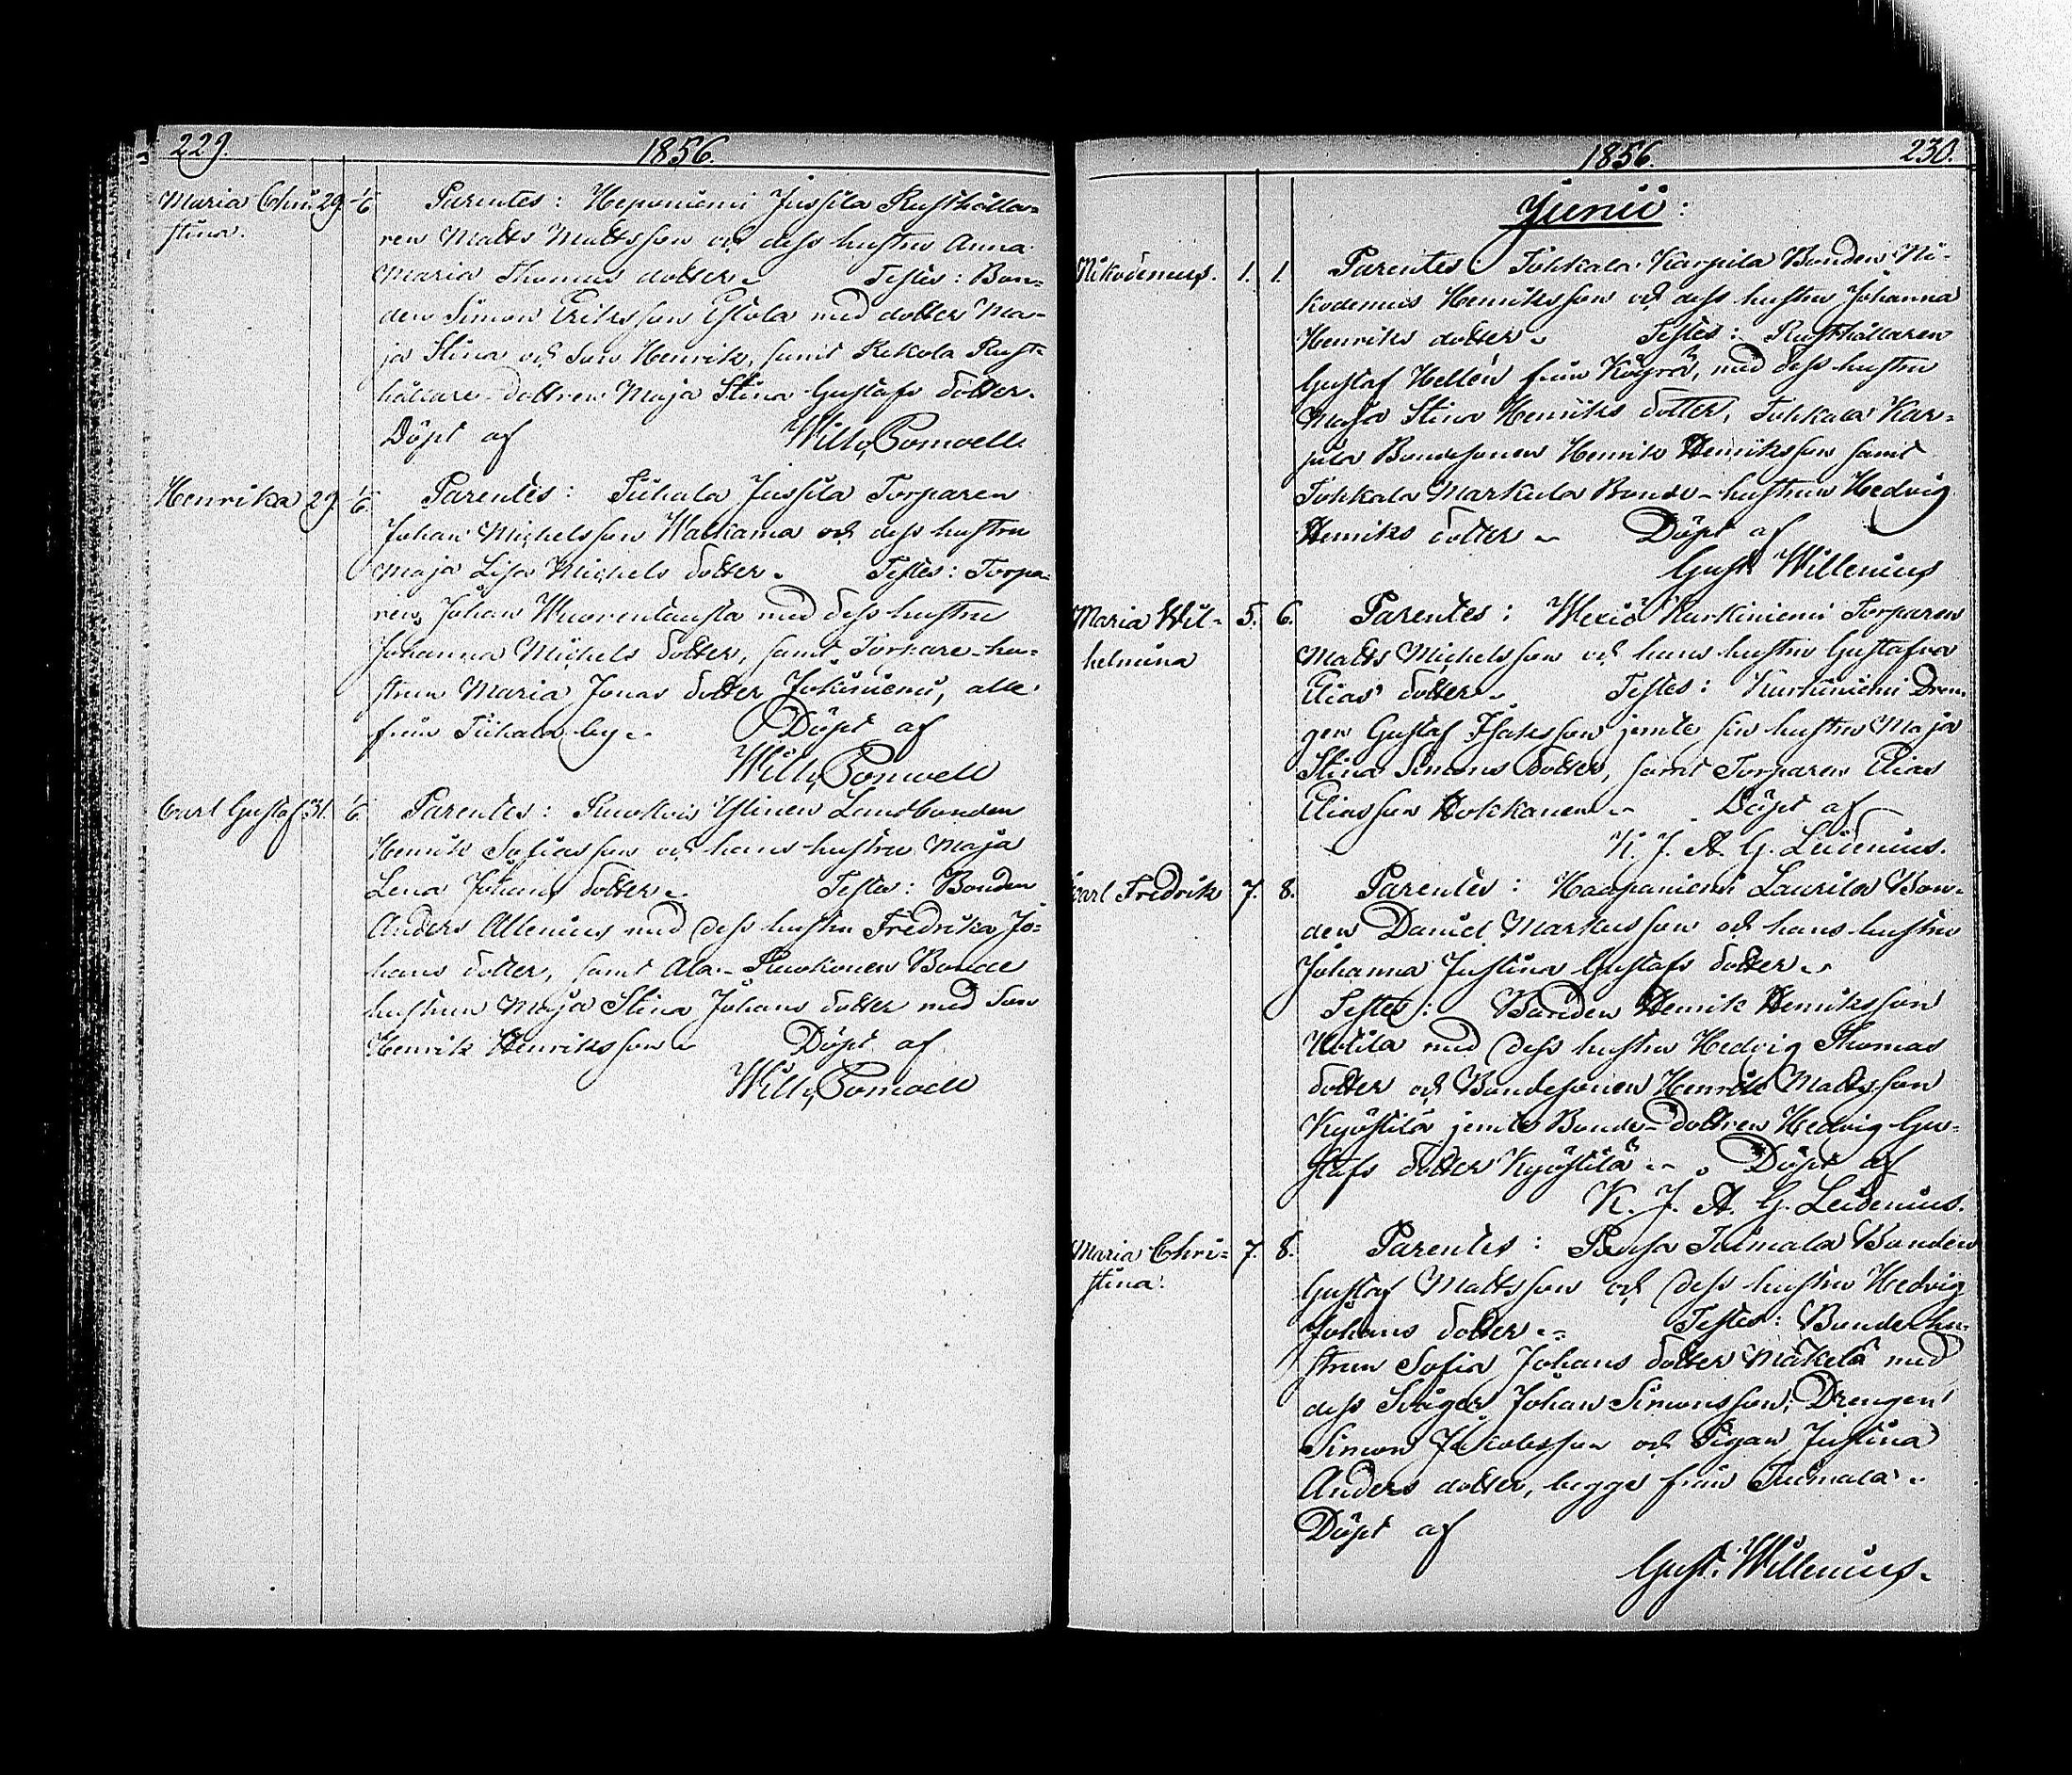 229. 1856.
Maria Chri- 29. 1/6 Parentes: Heponiemi Jussila Rusthålla-
stina. ren Matts Mattsson och dess hustru Anna
Maria Thomas dotter. Testes: Bon-
den Simon Eriksson Eskola med dotter Ma-
ja Stina och Son Henrik, samt Rekola Rust-
hållare-dottren Maja Stina Gustafs dotter.
Döpt af Will. Pomoell
Henrika 29. 1/6 Parentes: Tiihala Jussila Torparen
Johan Michelsson Walkama och dess hustru
Maja Lisa Michels dotter. Testes: Torpa-
ren Johan Wuorentausta med dess hustru
Johanna Michels dotter, samt Torpare-hu-
strun Maria Jonas dotter Jokiniemi, alla
från Tiihala by. Döpt af
Will. Pomoell
Carl Gustaf 31. 1/6 Parentes: Ylinen Landbonden
Henrik och hans hustru Maja
Lena Johans dotter. Testes: Bonden
Anders Allenius med dess hustru Fredrika Jo-
hans dotter, samt Ala- Bonde
hustrun Maja Stina Johans dotter med Son
Henrik Henriksson. Döpt af
Will. Pomoell
1856. 230.
Junii:
Nikodemus. 1. 1. Parentes: Karpila Bonden Ni-
kodemus Henriksson och dess hustru Johanna
Henriks dotter. Testes: Rusthållaren
Gustaf Hellén från Köyrä, med dess hustru
Maja Stina Henriks dotter, Kar-
pila Bondesonen Henrik Henriksson samt
Markula Bonde-hustrun Hedvig
Henriks dotter. Döpt af
Gust. Willenius
Maria Wil- 5. 6. Parentes: Kurkiniemi Torparen
helmina Matts Michelsson och hans hustru Gustafva
Elias dotter. Testes: Kurkiniemi Dren-
gen Gustaf Isaksson jemte sin hustru Maja
Stina Simons dotter, samt Torparen Elias
Eliasson Hokkanen. Döpt af
K. J. A. G. Leidenius.
Carl Fredrik 7. 8. Parentes: Haapaniemi Laurila Bon-
den Daniel Markusson och hans hustru
Johanna Justina Gustafs dotter.
Testes: Bonden Henrik Henriksson
med dess hustru Hedvig Thomas
dotter och Bondesonen Henrik Mattsson
Kyöstilä jemte Bonde-dottren Hedvig Gu-
stafs dotter Kyöstilä. Döpt af
K. J. A. G. Leidenius.
Maria Chri- 7. 8. Parentes: Tuimala Bonden
stina. Gustaf Mattsson och dess hustru Hedvig
Johans dotter. Testes: Bonde hu-
strun Sofia Johans dotter Mäkelä med
dess Svåger Johan Simonsson, Drengen
Simon Jakobsson och Pigan Justina
Anders dotter, begge från Tuimala.
Döpt af
Gust. Willenius.